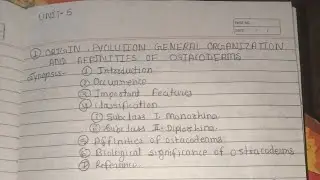 UNIT-5
① ORIGIN, EVOLUTION GENERAL ORGANIZATION
AND AFFINITIES OF OSTRACODERMS
Synopsis:- ① Introduction
② Occurrence
③ Important features
④ Classification
① Subclass I Monorhina
② Subclass II Diplorhina
⑤ Affinities of ostracoderms
⑥ Biological significance of ostracoderms
⑦ Reference